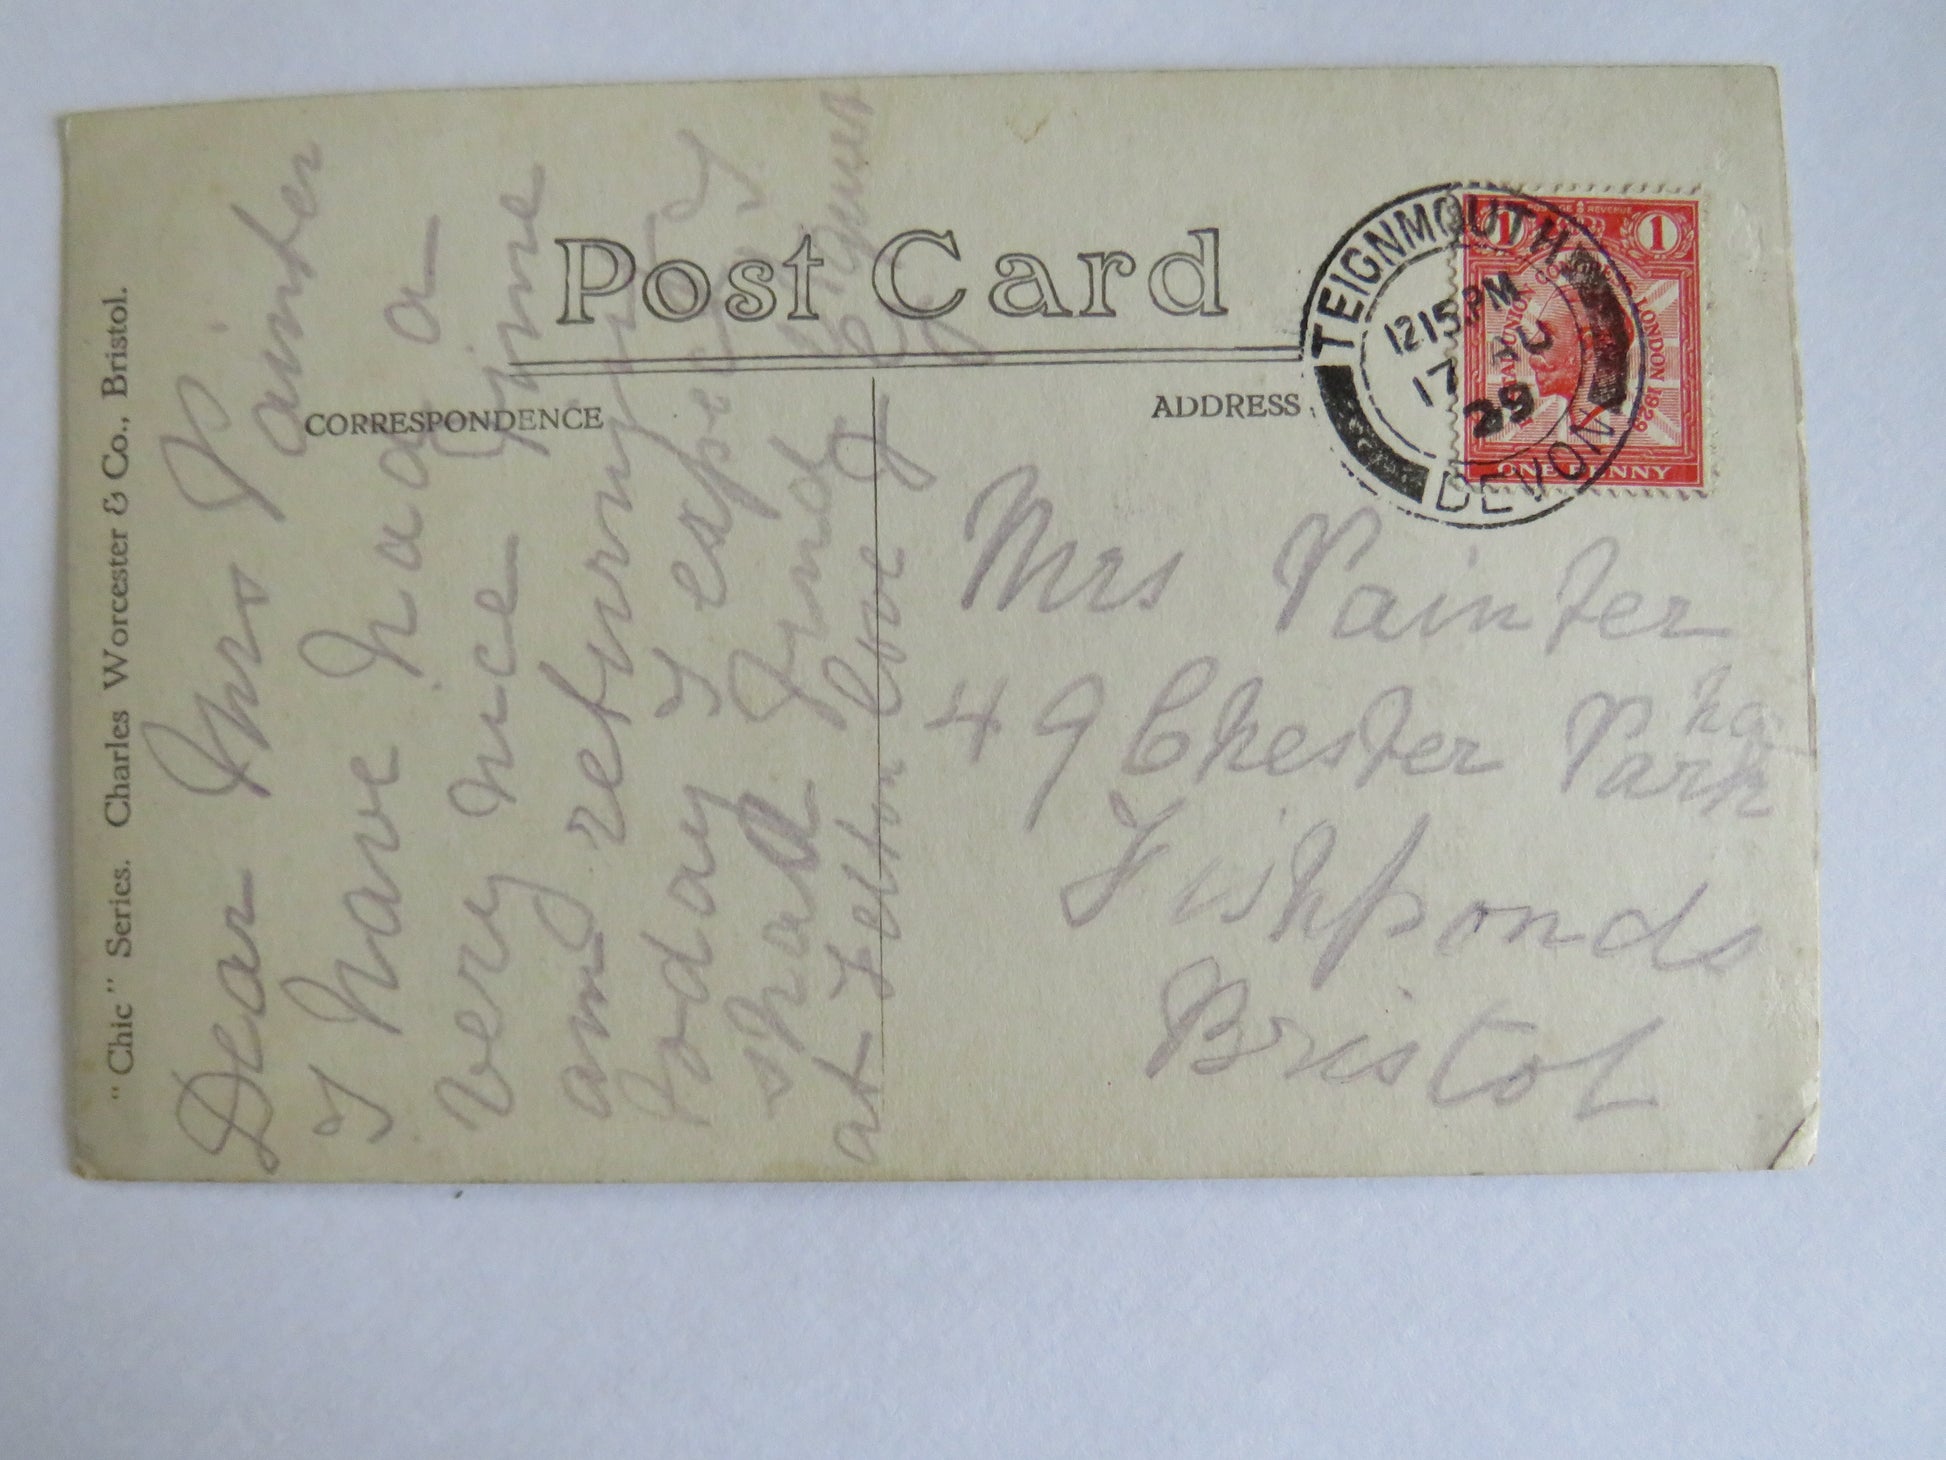 "Chic" Series. Charles Worcester & Co., Bristol.
Post Card
CORRESPONDENCE
ADDRESS
Dear Mrs Painter
I have had a
very nice time
am returning
today I expect I
shall find
at Felton love
Mrs Painter
49 Chester Park
Fishponds
Bristol
TEIGNMOUTH
1215 PM
17
29
DEVON
1
1
POSTAGE REVENUE
POSTAL UNION CONGRESS LONDON 1929
ONE PENNY